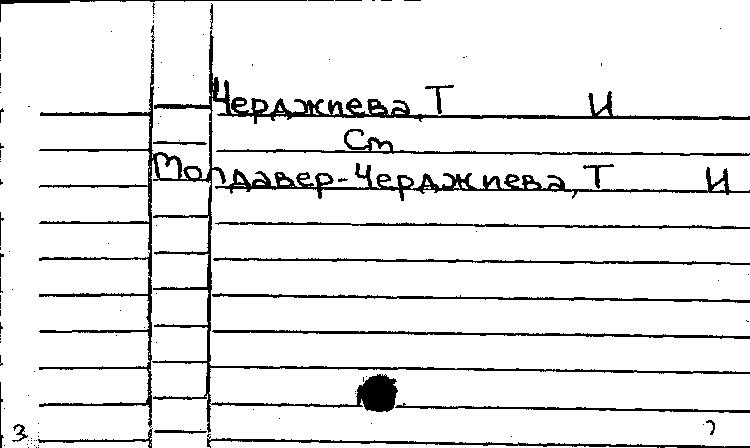 Черджиева, Т И
Ст
Молдавер-Черджиева, Т И
3